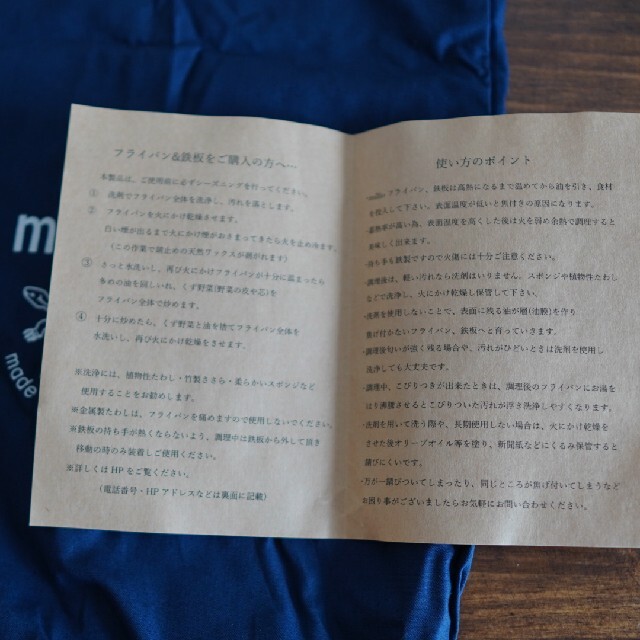 フライパン&鉄板をご購入の方へ…
本製品は、ご使用前に必ずシーズニングを行ってください。
① 洗剤でフライパン全体を洗浄し、汚れを落とします。
② フライパンを火にかけ乾燥させます。
白い煙が出るまで火にかけ煙がおさまってきたら火を止めます。
(この作業で錆止めの天然ワックスが剥がれます)
③ さっと水洗いし、再び火にかけフライパンが十分に温まったら
多めの油を回しいれ、くず野菜(野菜の皮や芯)を
フライパン全体で炒めます。
④ 十分に炒めたら、くず野菜と油を捨てフライパン全体を
水洗いし、再び火にかけ乾燥をさせます。
※洗浄には、植物性たわし・竹製ささら・柔らかいスポンジなど
使用することをお勧めします。
※金属製たわしは、フライパンを痛めますので使用しないでください。
※鉄板の持ち手が熱くならないよう、調理中は鉄板から外して頂き
移動の時のみ装着しご使用ください。
※詳しくはHPをご覧ください。
(電話番号・HPアドレスなどは裏面に記載)
使い方のポイント
フライパン、鉄板は高熱になるまで温めてから油を引き、食材
を投入して下さい。表面温度が低いと焦付きの原因になります。
・蓄熱率が高い為、表面温度を高くした後は火を弱め余熱で調理すると
美味しく出来ます。
・持ち手も鉄製ですので火傷には十分ご注意ください。
・調理後は、軽い汚れなら洗剤はいりません。スポンジや植物性たわし
などで洗浄し、火にかけ乾燥し保管して下さい。
・洗剤を使用しないことで、表面に残る油が層(油膜)を作り
焦げ付かないフライパン、鉄板へと育っていきます。
・調理後匂いが強く残る場合や、汚れがひどいときは洗剤を使用し
洗浄しても大丈夫です。
・調理中、こびりつきが出来たときは、調理後のフライパンにお湯を
はり沸騰させるとこびりついた汚れが浮き洗浄しやすくなります。
・洗剤を用いて洗う際や、長期使用しない場合は、火にかけ乾燥を
させた後オリーブオイル等を塗り、新聞紙などにくるみ保管すると
錆びにくいです。
・万が一錆びついてしまったり、同じところが焦げ付いてしまうなど
お困り事がございましたらお気軽にお問い合わせください。
m
made